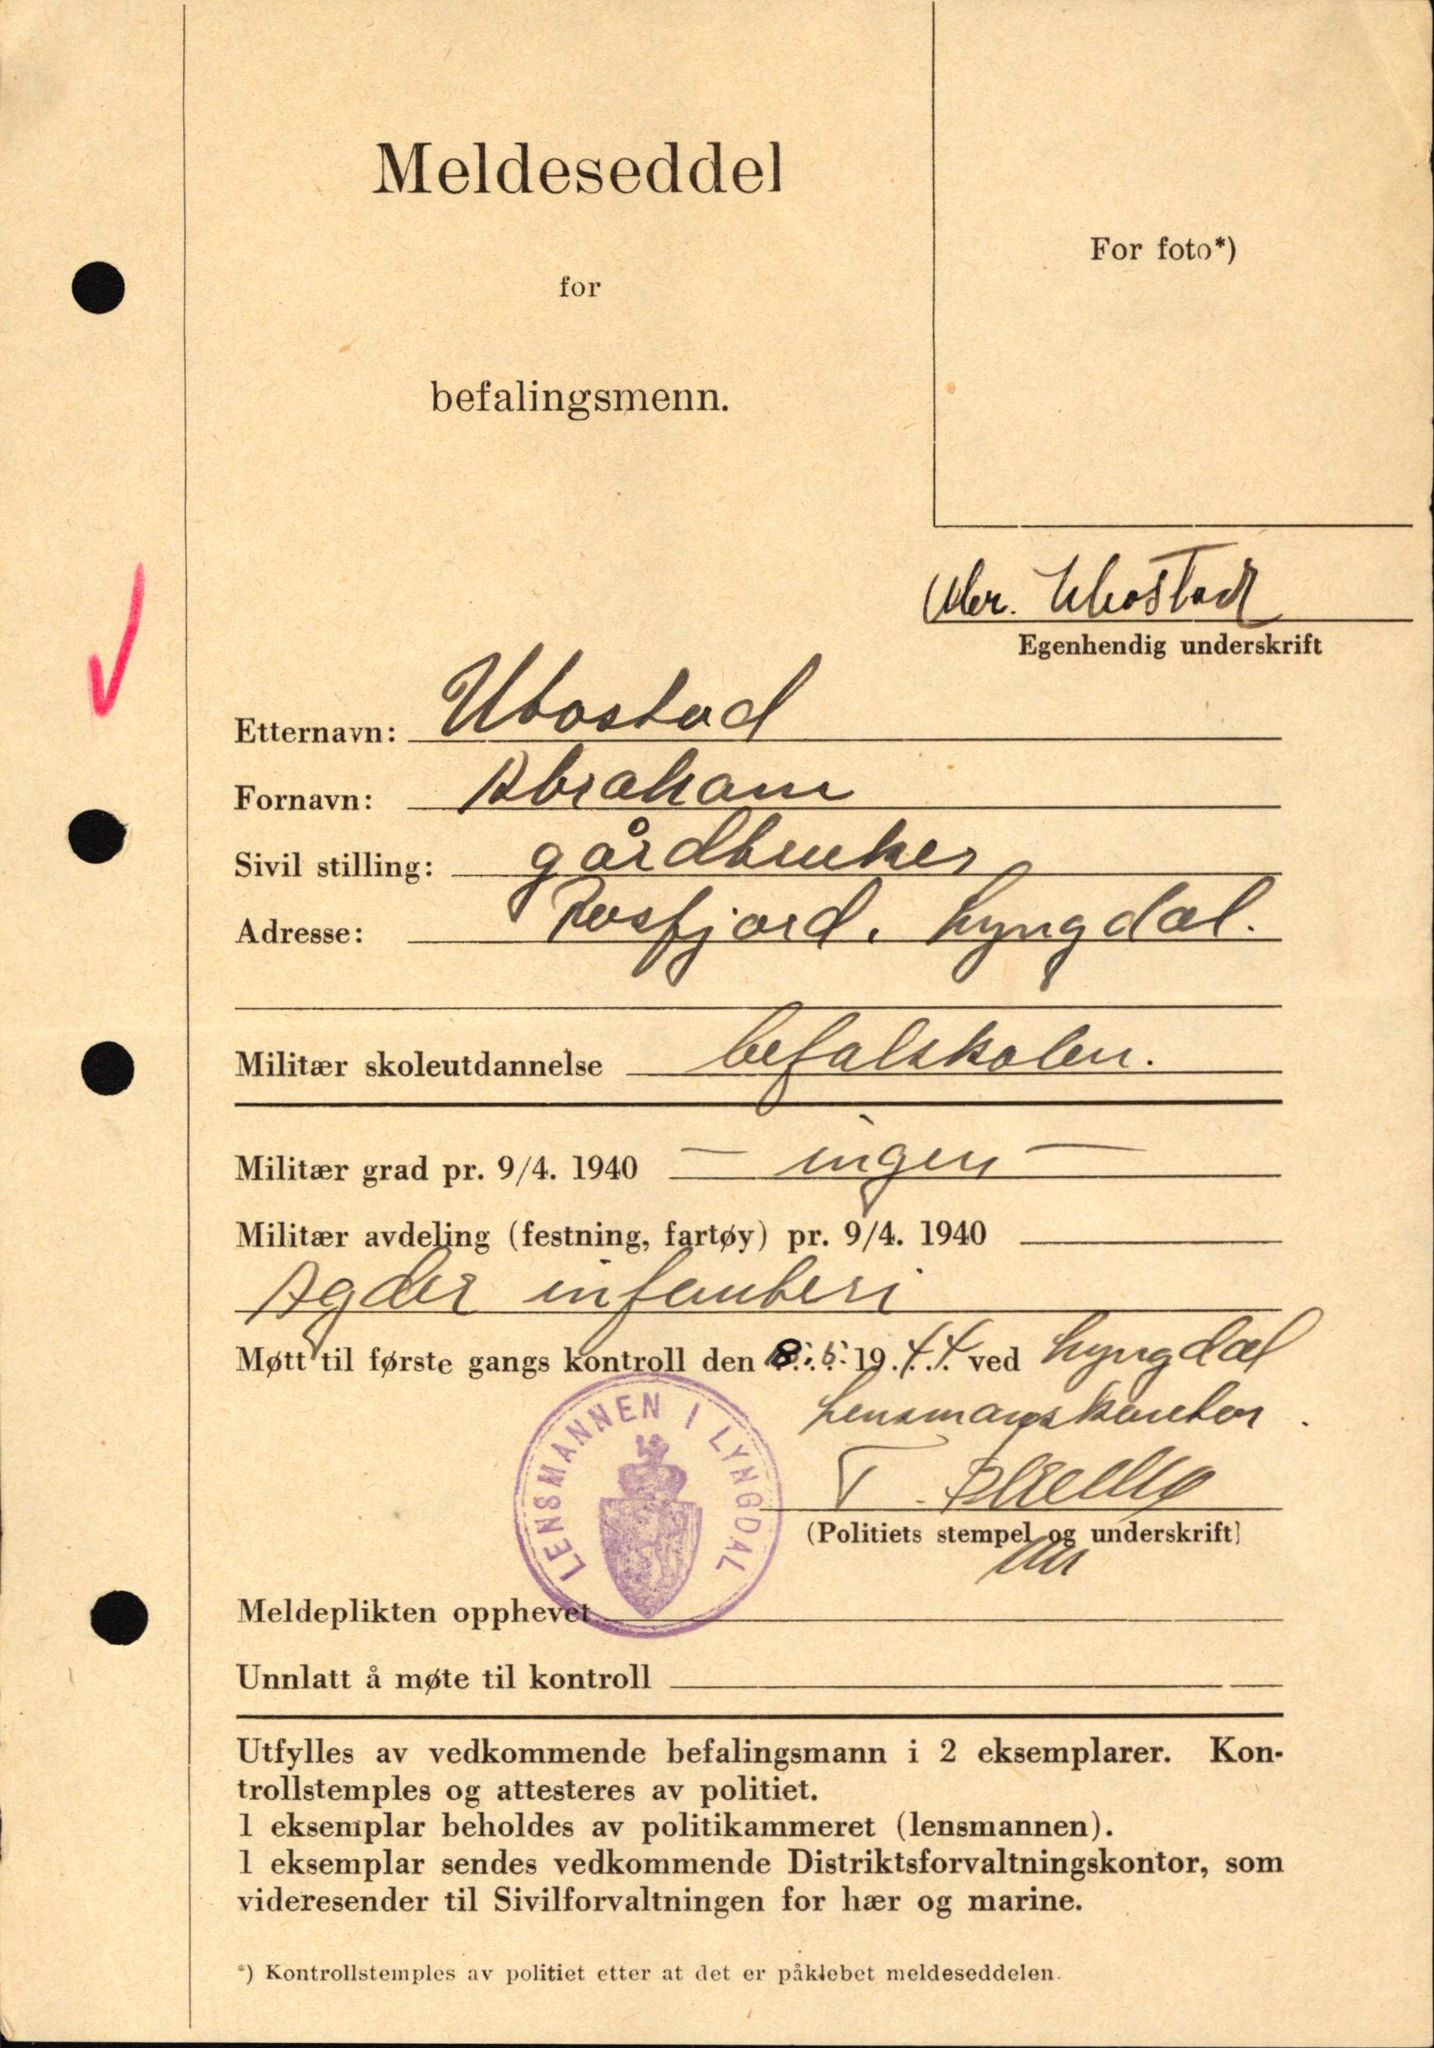 Meldeseddel
for
befalingsmenn.
For foto*)
Abr. Ubostad
Egenhendig underskrift
Etternavn: Ubostad
Fornavn: Abraham
Sivil stilling: gårdbruker
Adresse: Rosfjord. Lyngdal.
Militær skoleutdannelse befalskolen.
Militær grad pr. 9/4. 1940 — ingen —
Militær avdeling (festning, fartøy) pr. 9/4. 1940
Agder infanteri
Møtt til første gangs kontroll den 8.5. 1944 ved Lyngdal
Lensmanskontor.
LENSMANNEN I LYNGDAL
T.
(Politiets stempel og underskrift)
Meldeplikten opphevet
Unnlatt å møte til kontroll
Utfylles av vedkommende befalingsmann i 2 eksemplarer. Kon-
trollstemples og attesteres av politiet.
1 eksemplar beholdes av politikammeret (lensmannen).
1 eksemplar sendes vedkommende Distriktsforvaltningskontor, som
videresender til Sivilforvaltningen for hær og marine.
*) Kontrollstemples av politiet etter at det er påklebet meldeseddelen.